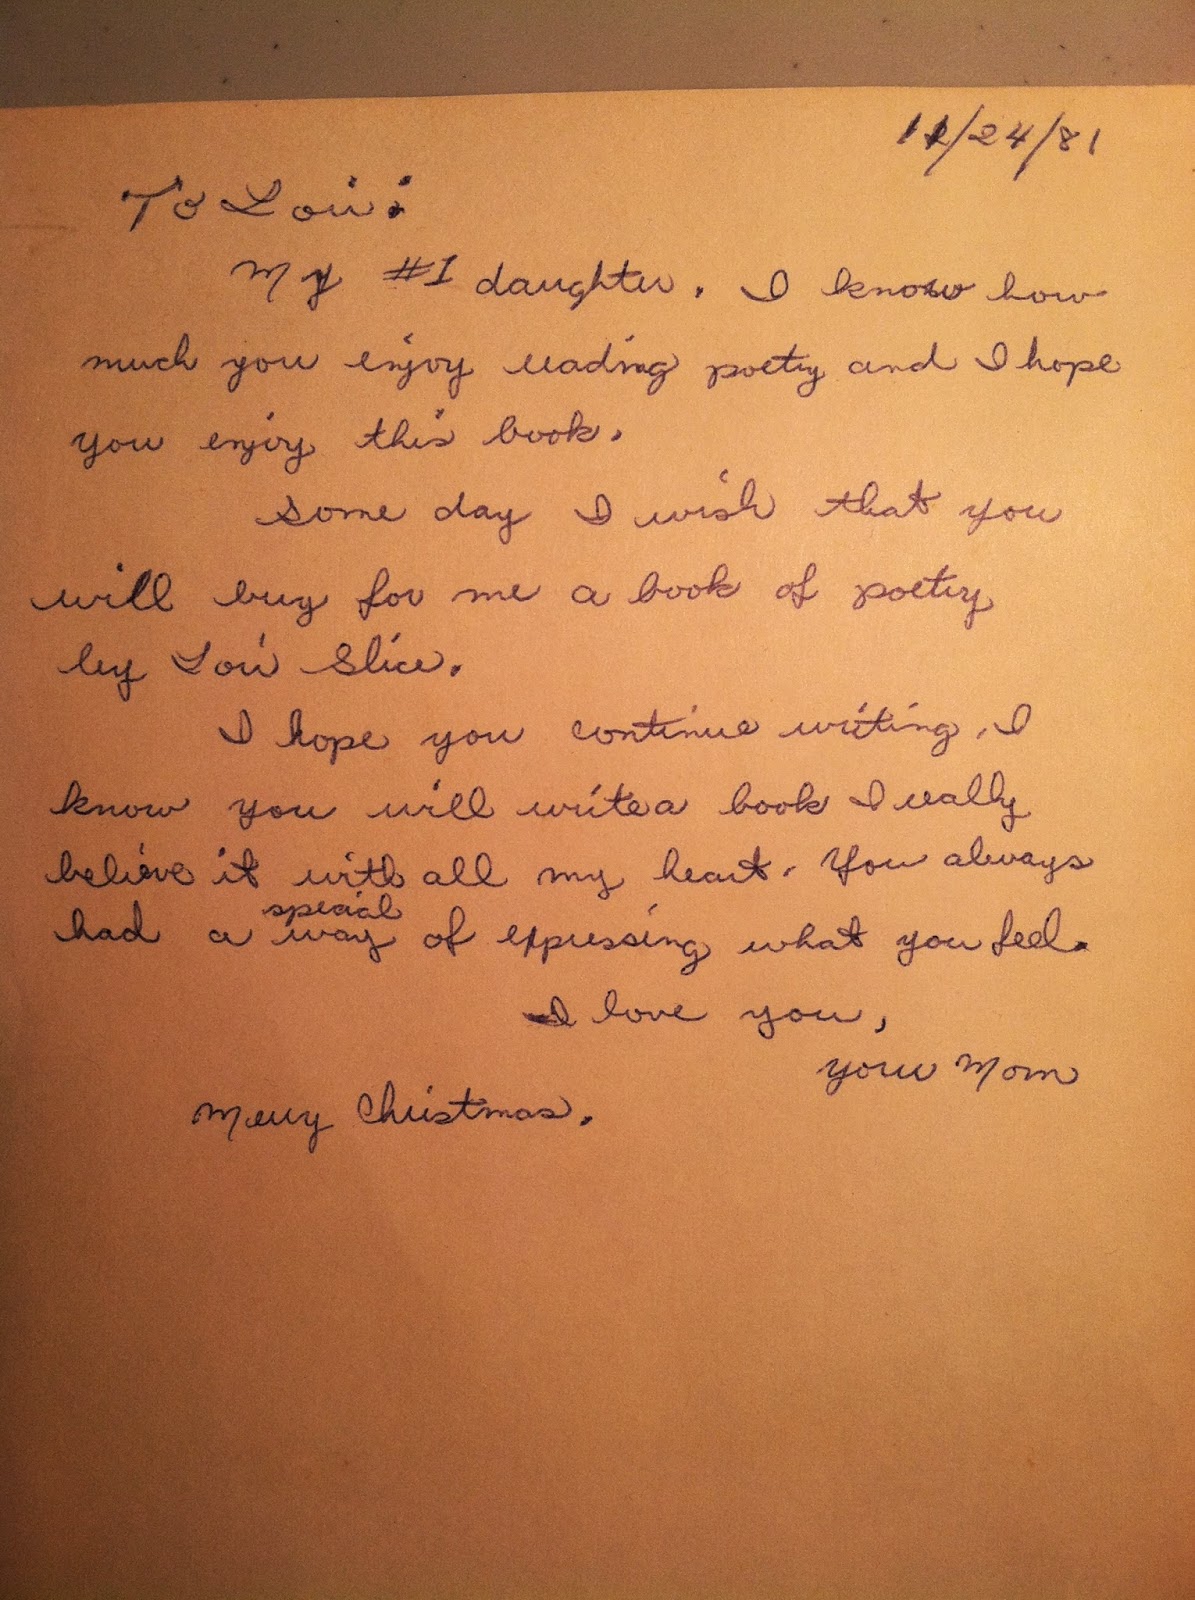 12/24/81
To Lori:
My #1 daughter. I know how
much you enjoy reading poetry and I hope
you enjoy this book.
Some day I wish that you
will buy for me a book of poetry
by Lori Slice.
I hope you continue writing. I
know you will write a book I really
believe it with all my heart. You always
special
had a way of expressing what you feel.
I love you,
your Mom
Merry Christmas.